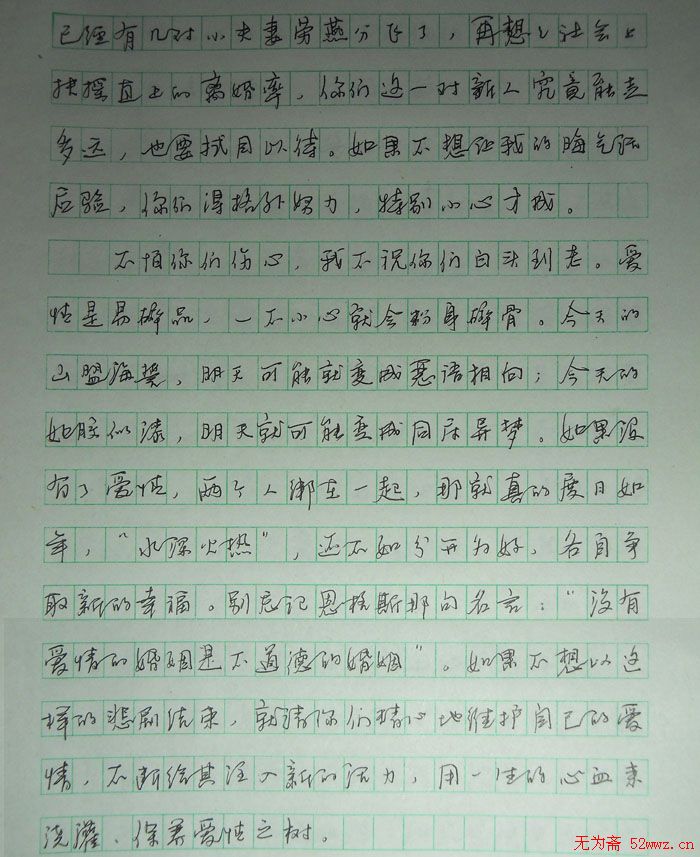 已经有几对小夫妻劳燕分飞了，再想想社会上
扶摇直上的离婚率，你们这一对新人究竟能走
多远，也要拭目以待。如果不想让我的晦气话
应验，你们得格外努力，特别小心才成。
不怕你们伤心，我不祝你们白头到老。爱
情是易碎品，一不小心就会粉身碎骨。今天的
山盟海誓，明天可能就变成恶语相向；今天的
如胶似漆，明天就可能变成同床异梦。如果没
有了爱情，两个人绑在一起，那就真的度日如
年，“水深火热”，还不如分开为好，各自争
取新的幸福。别忘记恩格斯那句名言：“没有
爱情的婚姻是不道德的婚姻”。如果不想以这
样的悲剧结束，就请你们精心地维护自己的爱
情，不断给其注入新的活力，用一生的心血来
浇灌、保养爱情之树。
无为斋 52wwz.cn